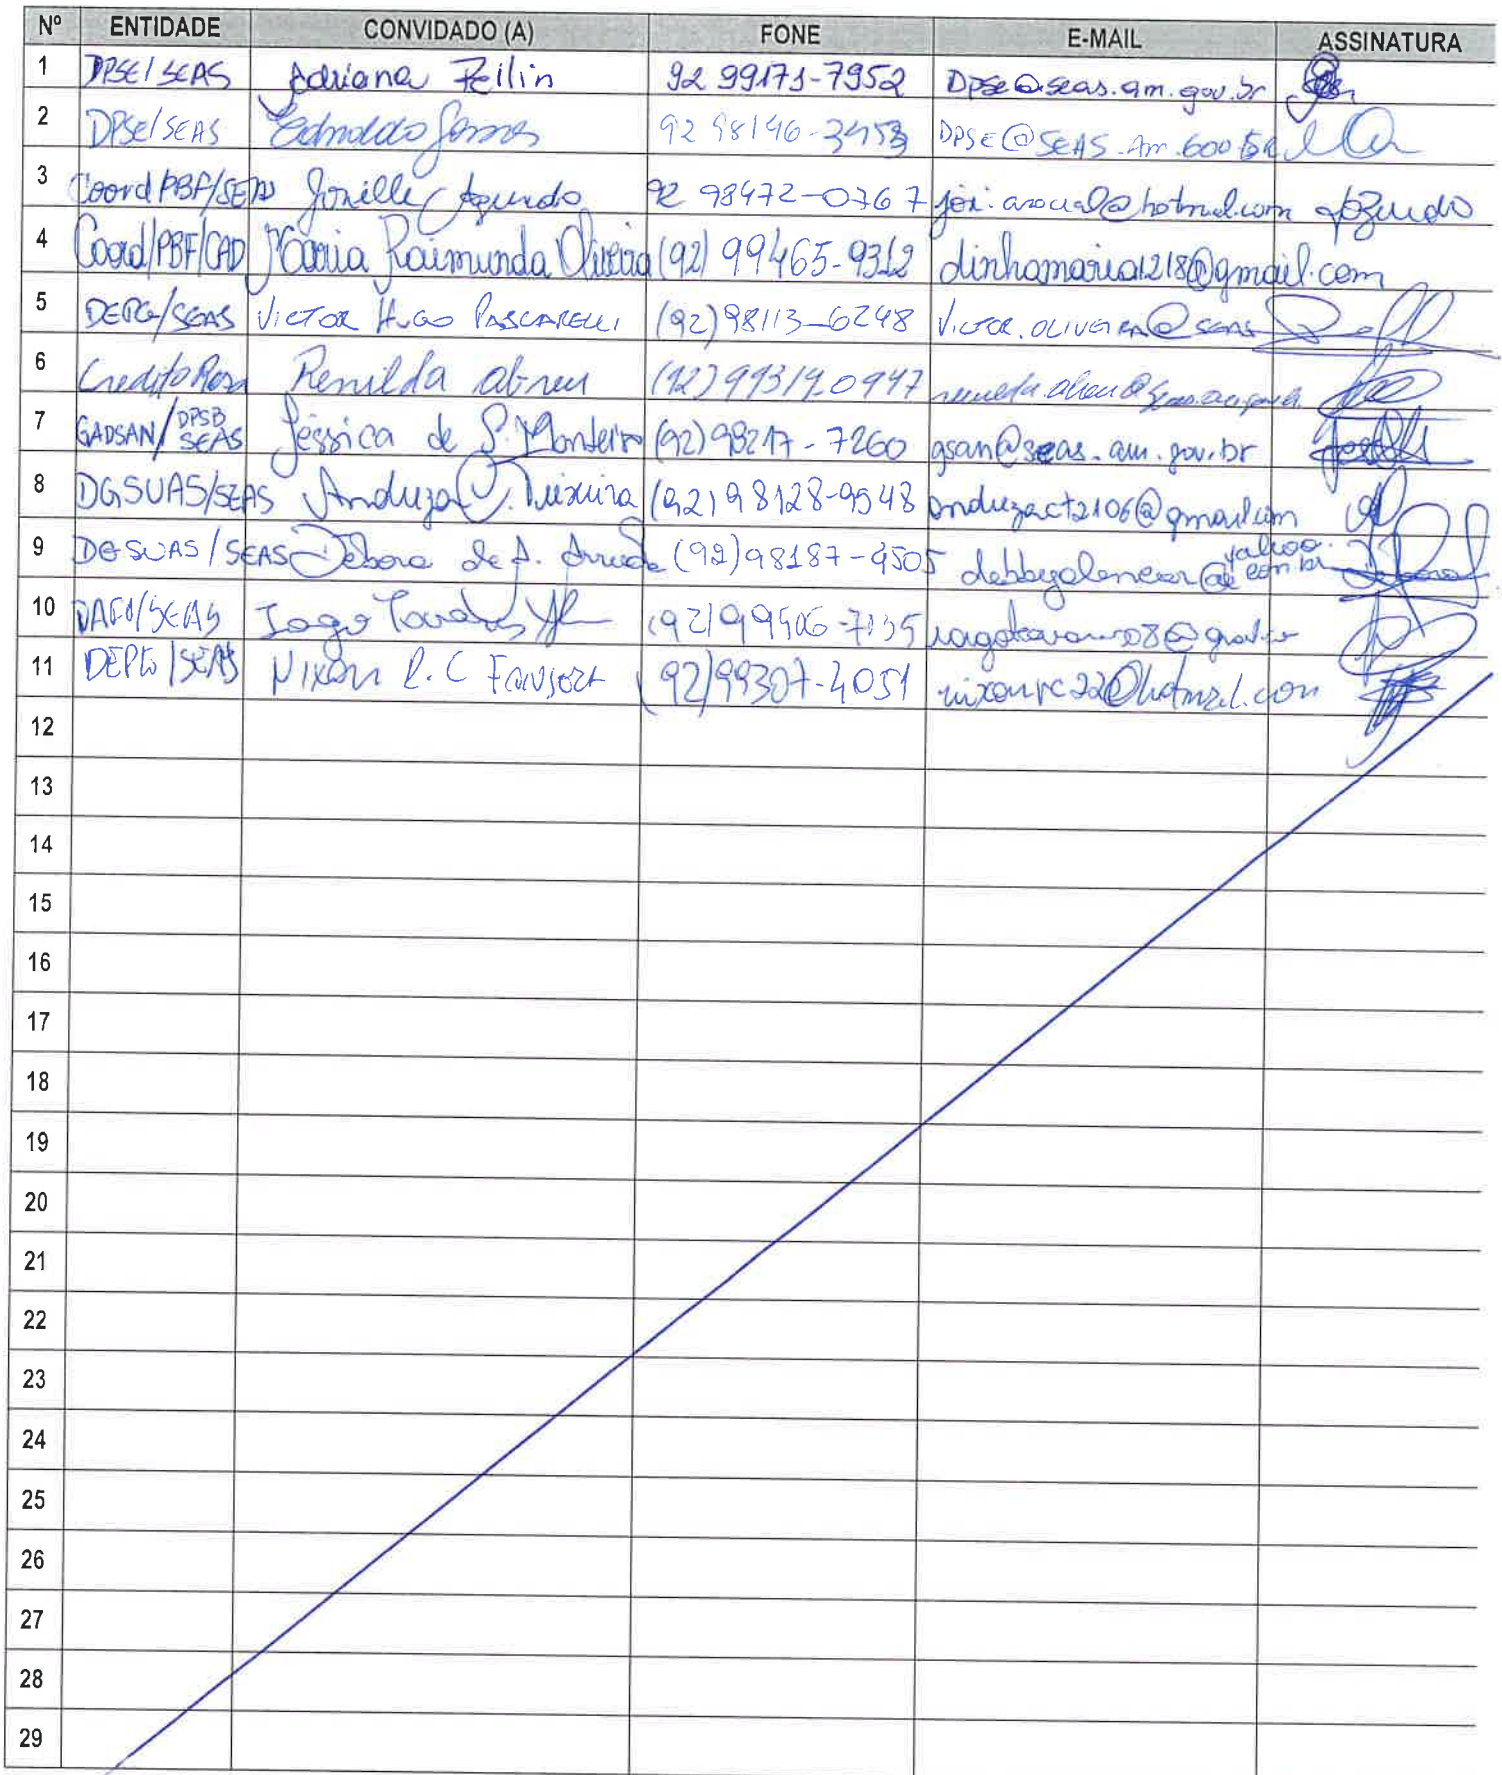 Nº ENTIDADE CONVIDADO (A) FONE E-MAIL ASSINATURA
1 DPSE/SEAS Adriana Zeilin 92 99171-7952 Dpse@seas.am.gov.br
2 DPSE/SEAS Ednaldo Gomes 92 98146-3453 DPSE@SEAS.Am.GOV.BR
3 Coord PBF/SEAS 92 98472-0767
4 Coord/PBF/CAD Maria Raimunda Oliveira (92) 99465-9312 dinhamaria1218@gmail.com
5 VICTOR HUGO PASCARELLI (92) 98113-6248 VICTOR.OLIVEIRA@SEAS
6 Credito Rosa Renilda abreu
7 GADSAN/DPSB SEAS Jéssica de S. Monteiro (92) 98217-7260 gsan@seas.am.gov.br
8 DGSUAS/SEAS Anduza C. Teixeira (92) 98128-9548 anduzact2106@gmail.com
9 DGSUAS/SEAS Débora de A. Arruda (92) 98187-4505 debbyalencar@yahoo.com.br
10 Iago Tavares
11 Nixon R. C (92) 99307-4051 nixonrc22@hotmail.com
12
13
14
15
16
17
18
19
20
21
22
23
24
25
26
27
28
29